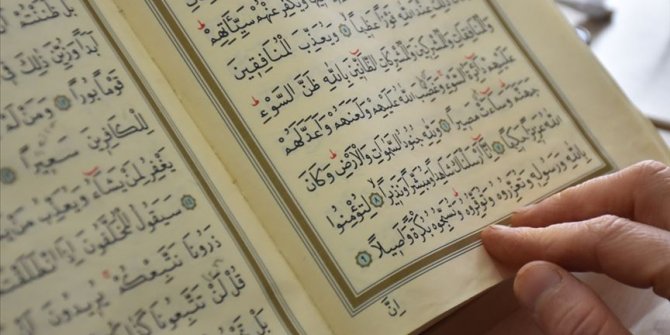 وَيُكَفِّرَ عَنْهُمْ سَيِّئَاتِهِمْ
عِنْدَ اللّٰهِ فَوْزًا عَظِيمًا ۝٥ وَيُعَذِّبَ الْمُنَافِقِينَ
وَالْمُنَافِقَاتِ وَالْمُشْرِكِينَ وَالْمُشْرِكَاتِ الظَّانِّينَ بِاللّٰهِ ظَنَّ السَّوْءِ
عَلَيْهِمْ دَائِرَةُ السَّوْءِ وَغَضِبَ اللّٰهُ عَلَيْهِمْ وَلَعَنَهُمْ وَاَعَدَّ لَهُمْ
جَهَنَّمَ وَسَاءَتْ مَصِيرًا ۝٦ وَلِلّٰهِ جُنُودُ السَّمٰوَاتِ وَالْاَرْضِ وَكَانَ
اللّٰهُ عَزِيزًا حَكِيمًا ۝٧ اِنَّا اَرْسَلْنَاكَ شَاهِدًا وَمُبَشِّرًا وَنَذِيرًا ۝٨ لِتُؤْمِنُوا
بِاللّٰهِ وَرَسُولِهِ وَتُعَزِّرُوهُ وَتُوَقِّرُوهُ وَتُسَبِّحُوهُ بُكْرَةً وَاَصِيلًا ۝٩
اِنَّ
بَلْ ظَنَنْتُمْ
اَبَدًا وَزُيِّنَ ذٰلِكَ فِي
قَوْمًا بُورًا ۝١٢ وَمَنْ لَمْ
لِلْكَافِرِينَ سَعِيرًا ۝١٣
يَغْفِرُ لِمَنْ يَشَاءُ وَيُعَذِّبُ مَنْ
سَيَقُولُ الْمُخَلَّفُونَ اِذَا انْطَلَقْتُمْ
ذَرُونَا نَتَّبِعْكُمْ يُرِيدُونَ اَنْ
قُلْ لَنْ تَتَّبِعُونَا
بَلْ